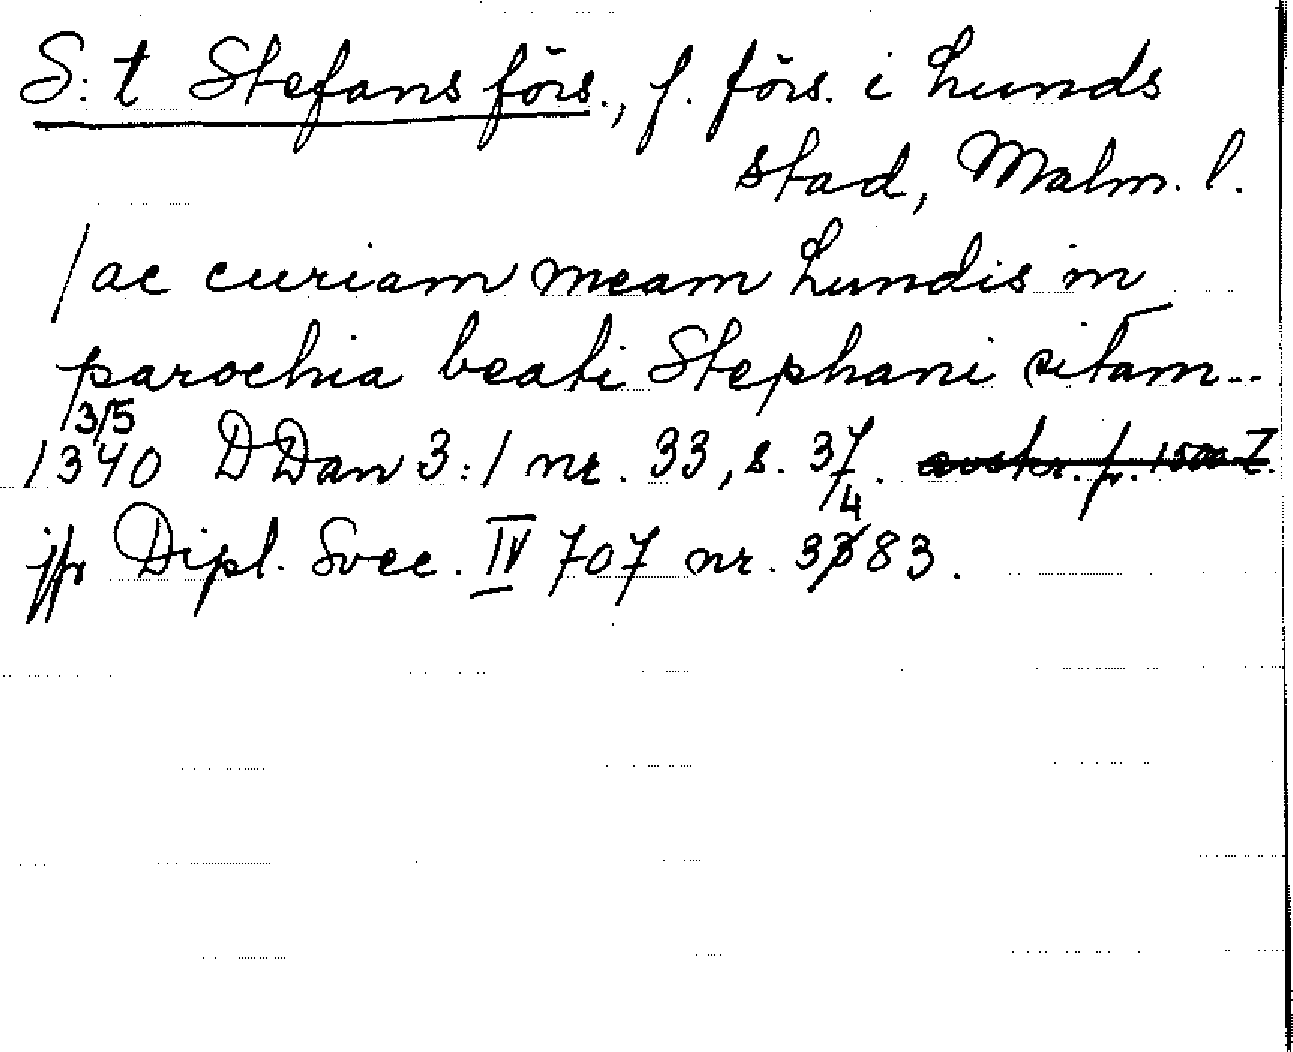 S:t Stefans förs., f. förs. i Lunds
stad, Malm. l.
/ac curiam meam Lundis in
parochia beati Stephani sitam --
3/5
1340 DDan 3:1 nr. 33, s. 37. avskr. fr. 1500-t.
4
jfr Dipl. Svec. IV 707 nr. 3383.